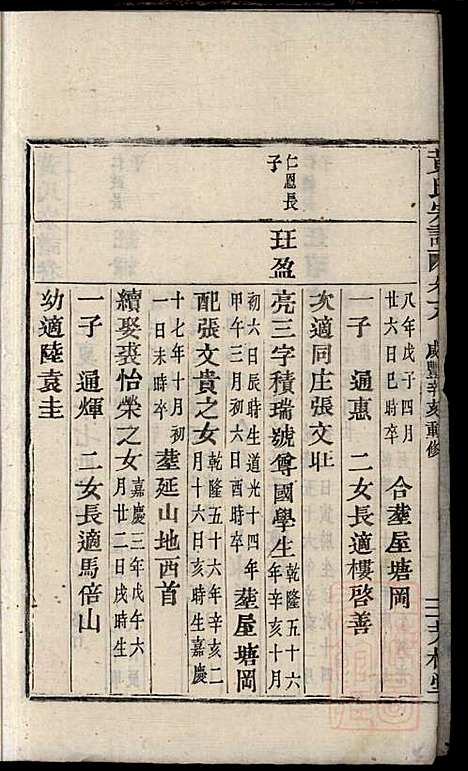 黃氏宗譜
咸豐辛亥重修
八年戊子四月
廿六日巳時卒
合塟屋塘岡
一子 通惠 二女長適樓啓善
次適同庄張文
仁恩長
子
盈
亮三字積瑞號尊國學生
乾隆五十六
年辛亥十月
初六日辰時生道光十四年
甲午三月初六日酉時卒
塟屋塘岡
配張文貴之女
乾隆五十六年辛亥二
月十六日亥時生嘉慶
十七年十月初
一日未時卒
塟延山地西首
續娶裘怡榮之女
嘉慶三年戊午六
月廿二日戌時生
一子 通煇 二女長適馬倍山
幼適陸袁圭